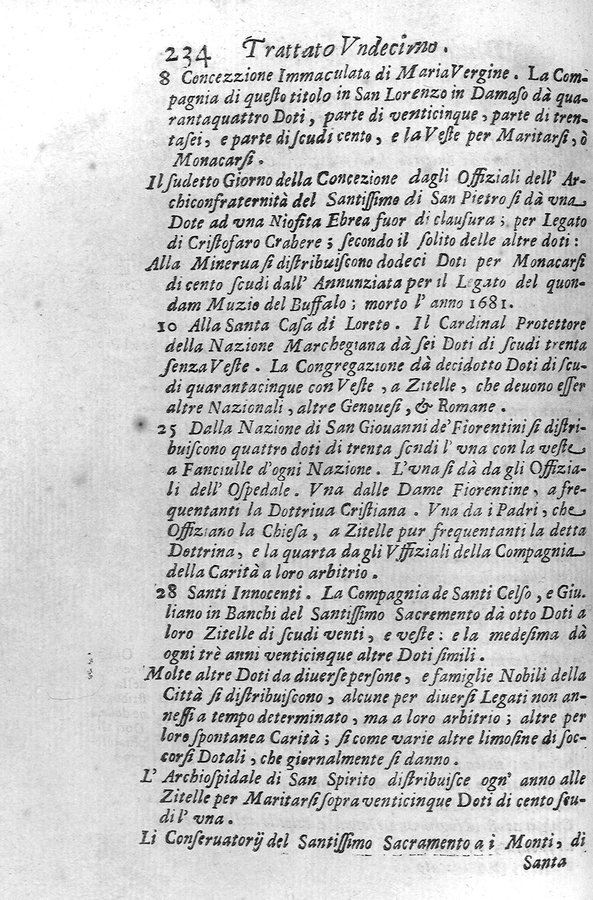 234 Trattato Vndecimo.
8 Concezzione Immaculata di Maria Vergine. La Com-
pagnia di queſto titolo in San Lorenzo in Damaſo dà qua-
rantaquattro Doti, parte di venticinque, parte di tren-
taſei, e parte di ſcudi cento, e la Veſte per Maritarſi, ò
Monacarſi.
Il ſudetto Giorno della Concezione dagli Offiziali dell' Ar-
chiconfraternità del Santiſſimo di San Pietro ſi dà vna
Dote ad vna Niofita Ebrea fuor di clauſura; per Legato
di Criſtofaro Crabere; ſecondo il ſolito delle altre doti:
Alla Minerua ſi diſtribuiſcono dodeci Doti per Monacarſi
di cento ſcudi dall' Annunziata per il Legato del quon-
dam Muzio del Buffalo; morto l' anno 1681.
10 Alla Santa Caſa di Loreto. Il Cardinal Protettore
della Nazione Marchegiana dà ſei Doti di ſcudi trenta
ſenza Veſte. La Congregazione dà decidotto Doti di ſcu-
di quarantacinque con Veſte, a Zitelle, che deuono eſſer
altre Nazionali, altre Genoueſi, & Romane.
25 Dalla Nazione di San Giouanni de' Fiorentini ſi diſtri-
buiſcono quattro doti di trenta ſcndi l' vna con la veſte
a Fanciulle d'ogni Nazione. L'vna ſi dà da gli Offizia-
li dell' Oſpedale. Vna dalle Dame Fiorentine, a fre-
quentanti la Dottriua Criſtiana. Vna da i Padri, che
Offiziano la Chieſa, a Zitelle pur frequentanti la detta
Dottrina, e la quarta dagli Vffiziali della Compagnia
della Carità a loro arbitrio.
28 Santi Innocenti. La Compagnia de Santi Celſo, e Giu-
liano in Banchi del Santiſſimo Sacremento dà otto Doti a
loro Zitelle di ſcudi venti, e veſte: e la medeſima dà
ogni trè anni venticinque altre Doti ſimili.
Molte altre Doti da diuerſe perſone, e famiglie Nobili della
Città ſi diſtribuiſcono, alcune per diuerſi Legati non an-
neſſi a tempo determinato, ma a loro arbitrio; altre per
loro ſpontanea Carità; ſi come varie altre limoſine di ſoc-
corſi Dotali, che giornalmente ſi danno.
L' Archioſpidale di San Spirito diſtribuiſce ogn' anno alle
Zitelle per Maritarſi ſopra venticinque Doti di cento ſcu-
di l' vna.
Li Conſeruatorij del Santiſſimo Sacramento a i Monti, di
Santa